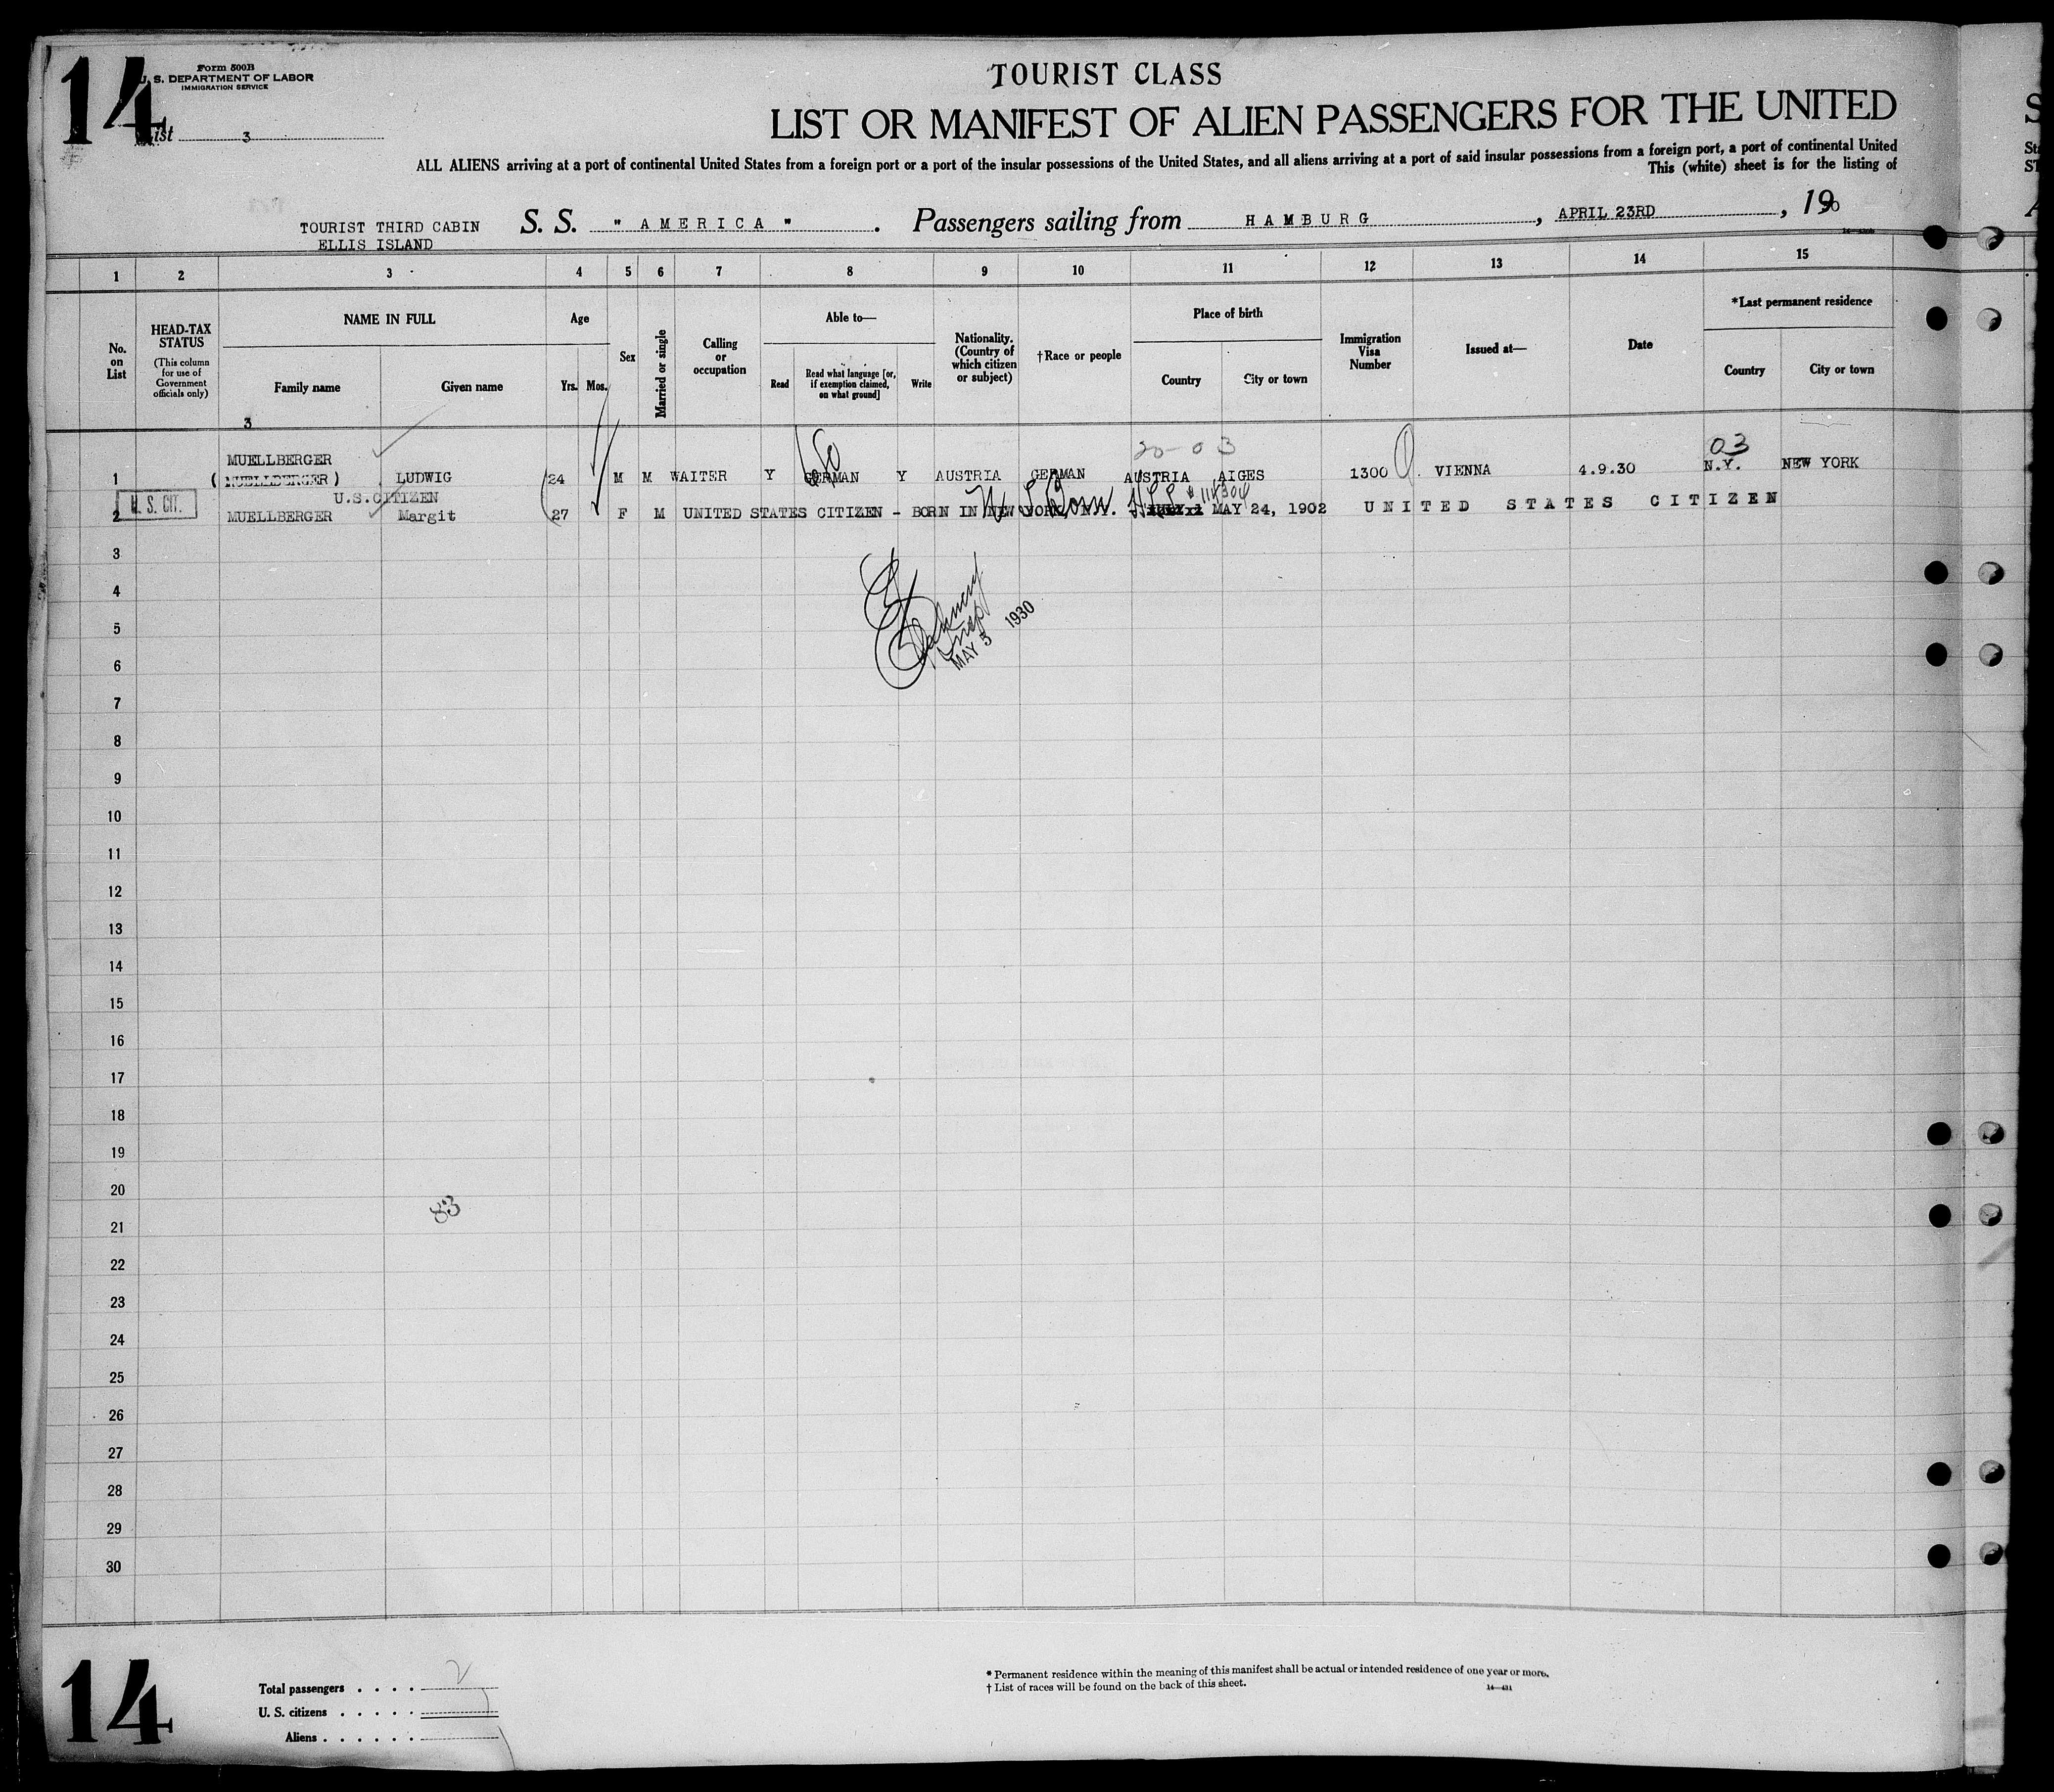 14
Form 500B
U. S. DEPARTMENT OF LABOR
IMMIGRATION SERVICE
List 3
TOURIST CLASS
LIST OR MANIFEST OF ALIEN PASSENGERS FOR THE UNITED
ALL ALIENS arriving at a port of continental United States from a foreign port or a port of the insular possessions of the United States, and all aliens arriving at a port of said insular possessions from a foreign port, a port of continental United
This (white) sheet is for the listing of
TOURIST THIRD CABIN
ELLIS ISLAND
S. S. " AMERICA " . Passengers sailing from HAMBURG , APRIL 23RD , 1930
1 2 3 4 5 6 7 8 9 10 11 12 13 14 15
No. on List
HEAD-TAX STATUS
(This column for use of Government officials only)
NAME IN FULL
Family name Given name
Age
Yrs. Mos.
Sex
Married or single
Calling or occupation
Able to—
Read
Read what language [or, if exemption claimed, on what ground]
Write
Nationality. (Country of which citizen or subject)
†Race or people
Place of birth
Country City or town
Immigration Visa Number
Issued at—
Date
*Last permanent residence
Country City or town
3
20-03 03
MUELLBERGER
1 (MUELLBERGER) LUDWIG 24 M M WAITER Y GERMAN Y AUSTRIA GERMAN AUSTRIA AIGES 1300 VIENNA 4.9.30 N.Y. NEW YORK
U. S. CIT. U.S.CITIZEN
2 MUELLBERGER Margit 27 F M UNITED STATES CITIZEN - BORN IN NEW YORK, N.Y. MAY 24, 1902 UNITED STATES CITIZEN
3
4
5
MAY 3 1930
6
7
8
9
10
11
12
13
14
15
16
17
18
19
20
83
21
22
23
24
25
26
27
28
29
30
14
Total passengers . . . . 2
U. S. citizens . . . . .
Aliens . . . . . .
* Permanent residence within the meaning of this manifest shall be actual or intended residence of one year or more.
† List of races will be found on the back of this sheet.